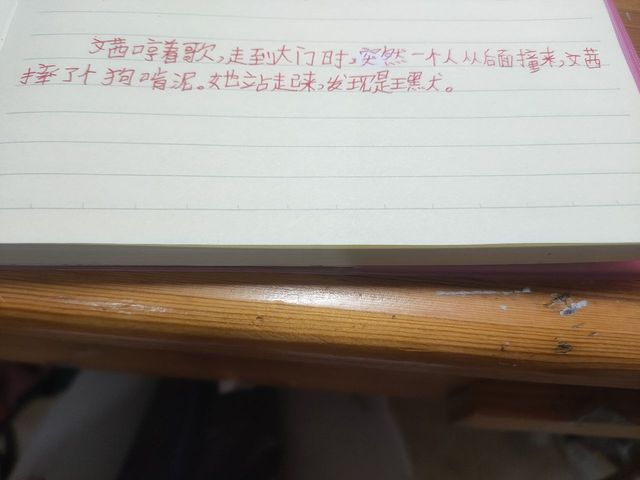 文茜哼着歌,走到大门时,突然一个人从后面撞来,文茜
摔了个狗啃泥。她站走起来,发现是王黑犬。